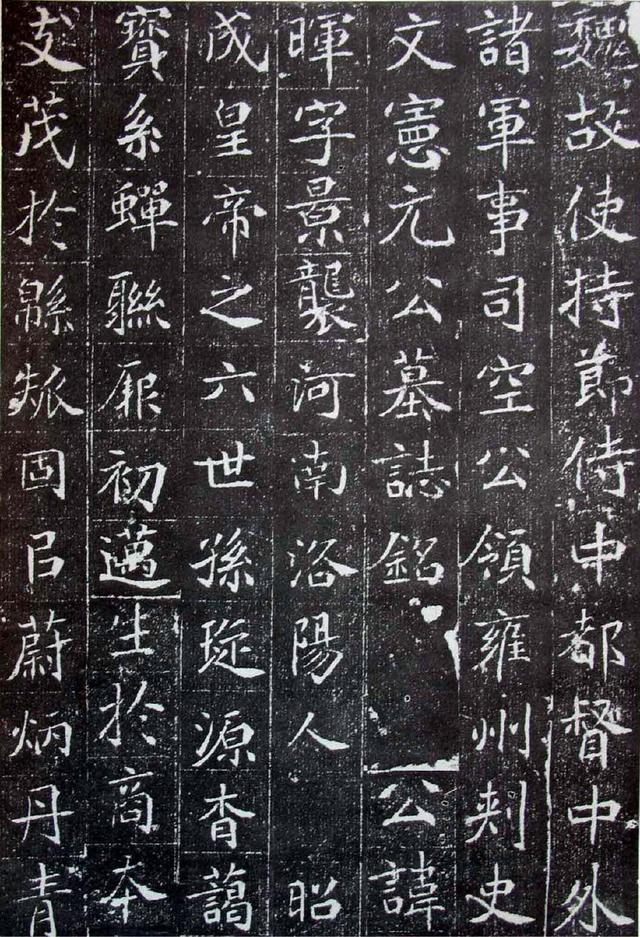 魏故使持節侍中都督中外
諸軍事司空公領雍州刾史
文憲元公墓誌銘 公諱
暉字景襲河南洛陽人 昭
成皇帝之六世孫琁源杳藹
寶系蟬聯厥初邁生於商本
支茂於緜瓞固㠯蔚炳丹青